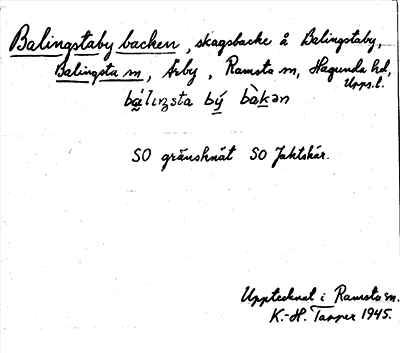 Balingstaby backen, skogsbacke å Balingstaby,
Balingsta sn, Årby, Ramsta sn, Hagunda hd,
Upps.l.
bálinsta bý bàkən
SO gränsknät SO Jaktskär.
Upptecknat i Ramsta sn.
K.-H. Tapper 1945.